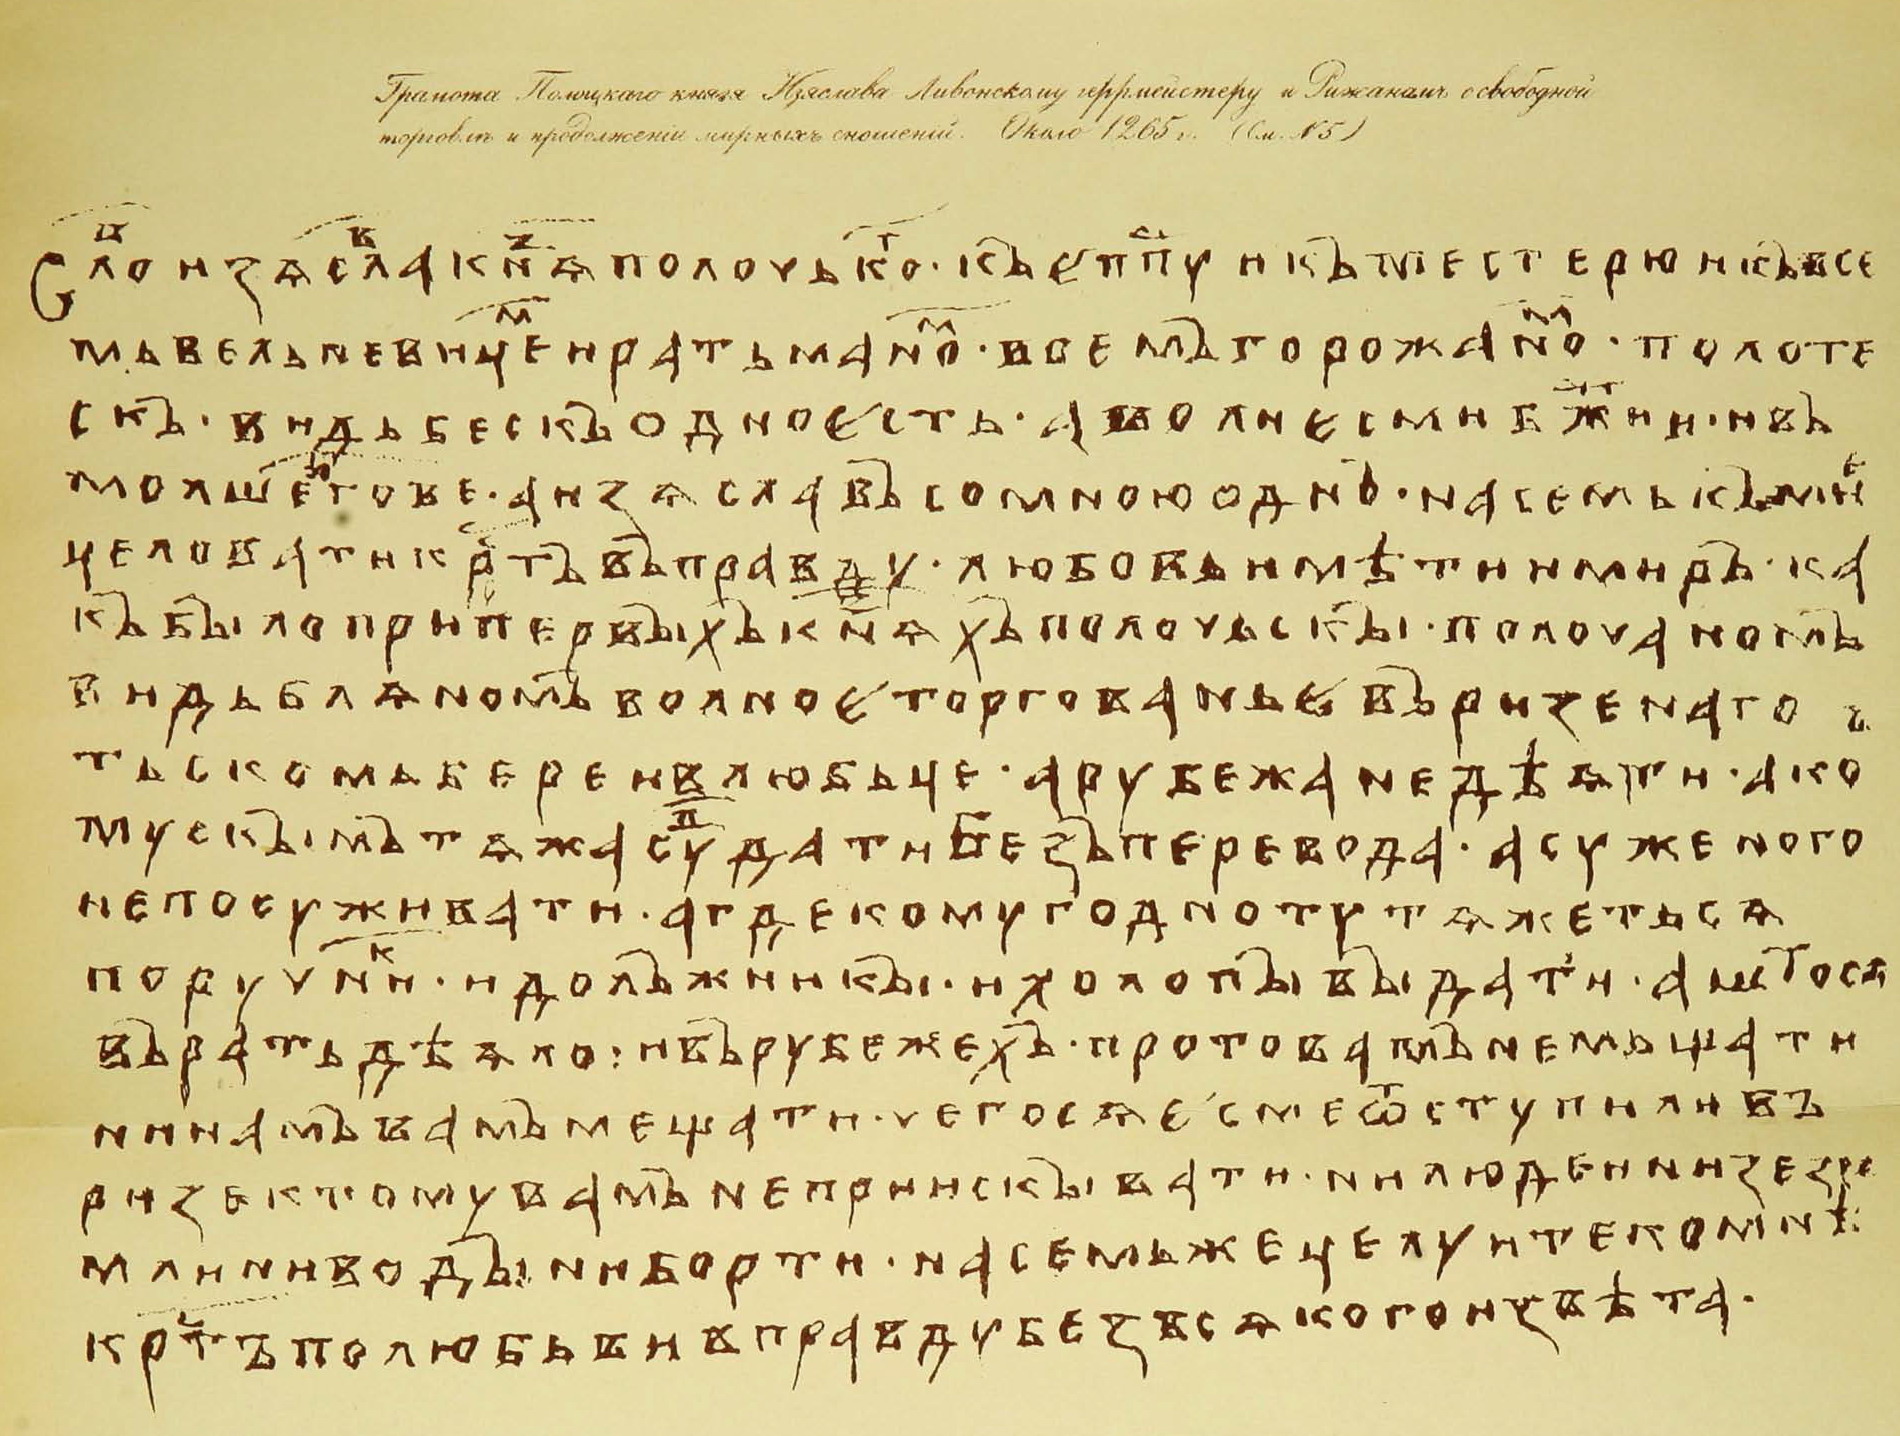 Грамота Полоцкаго князя Изяслава Ливонскому геррмейстеру и Рижанамъ о свободной
торговлѣ и продолженіи мирныхъ сношеній. Около 1265 г. (См. №5)
Сло̅ⷡ҇ изѧсла̅ⷡ кн̅ѧⷥ полочько̅ⷮ · къ єпп̅ⷭу и къ местерю и къ всe
мъ вельневице̅ⷨ и ратьмано̅ⷨ · всемъ горожано̅ⷨ · полоте
скъ · видьбескъ одно єсть · а воли єсми бж҃ии · и въ
молшеⷢ҇гове · а изѧславъ со мною одно · на семь къ мнⷷѣ
целовати крⷭ҇тъ въ правду · любовь имѣти и миръ · ка
къ было при первыхъ кн҃ѧхъ полочьскы · полочаномъ
видьблѧномъ волноє торгованьє въ ризе на го
тьскомь березѣ и в любьце · а рубежа не дѣѧти · а ко
му с кымь тѧжа суⷣ дати безъ перевода · а суженого
не посуживати · а где кому годно ту тѧжетьсѧ
поручнⷦи · и долъжникы · и холопы выдати · а што сѧ
въ рать дѣѧло : и въ рубежехъ · про то вамъ не мьщати
ни намъ вамъ мещати · чего сѧ єсме ѿступили въ
ризе к тому вамъ не приискывати · ни людеи ни зе
мли ни воды ни борти · на семь же целуите ко мнѣ
крⷭ҇тъ по любъви в правду безъ всѧкого извѣта ·